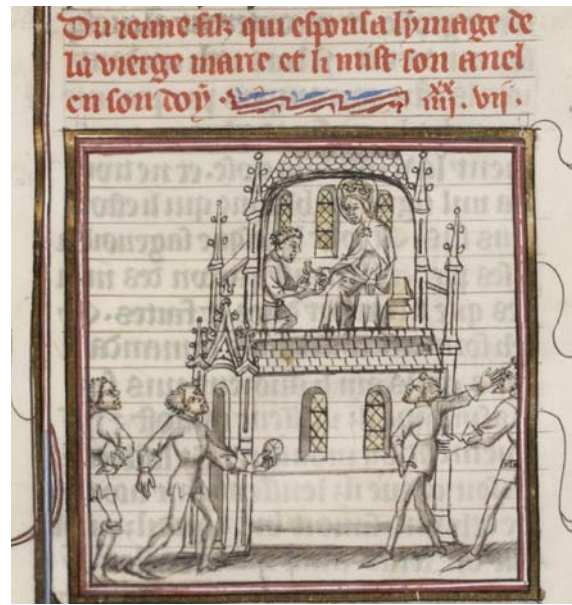 Du ienne filz qui espousa lymage de
la vierge marie et li mist son anel
en son doy · xx iiii · vii ·